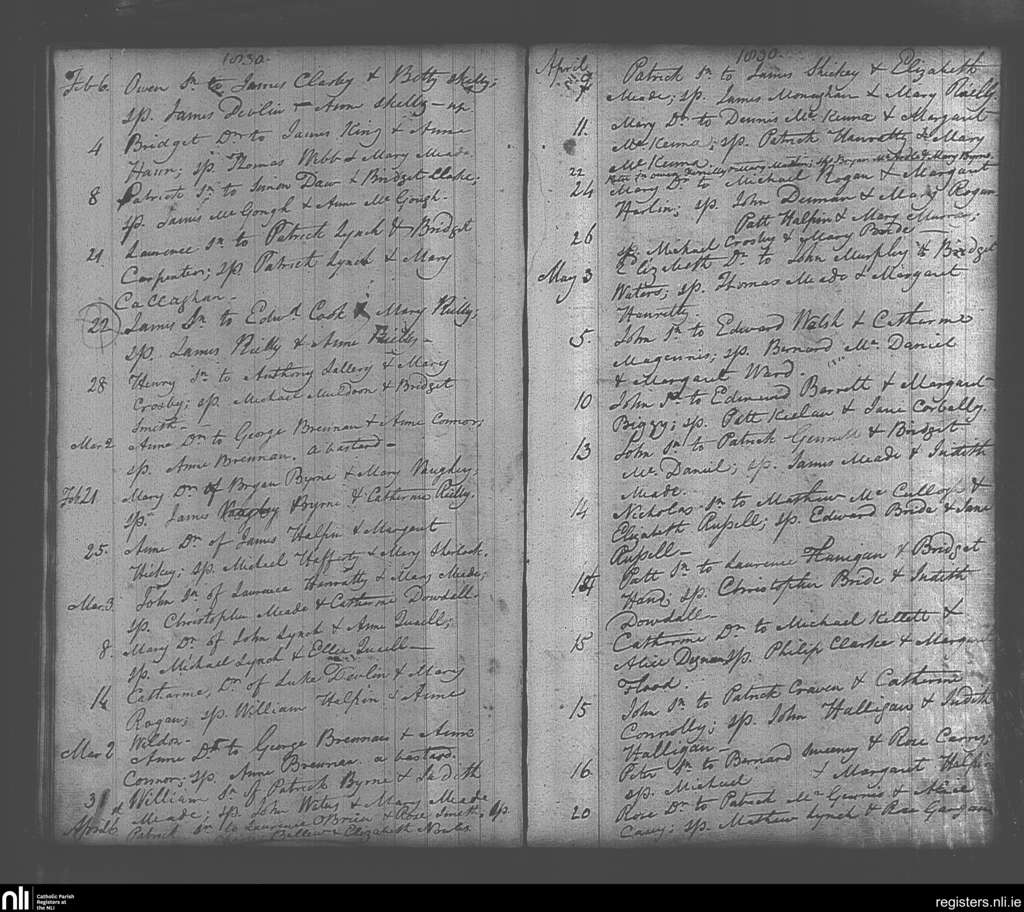 1830.
Feb 6. Owen Sn to James Clarby & Betty Skelly;
sp. James Devlin & Anne Skelly
4 Bridget Dr to James King & Anne
Hawn; sp. Thomas Webb & Mary Meade
8 Patrick Sn to Simon Daw & Bridget Clarke;
sp. James Mc Gough & Anne Mc Gough.
21 Laurence Sn to Patrick Lynch & Bridget
Carpenter; sp. Patrick Lynch & Mary
Callaghan.
22 James Sn to Edwd Cook & Mary Reilly;
sp. James Reilly & Anne Reilly
28 Henry Sn to Anthony Sallery & Mary
Crosby; sp. Michael Muldoon & Bridget
Smith
Mar 2 Anne Dr to George Brennan & Anne Connor;
sp. Anne Brennan. a bastard
Feb 21 Mary Dr of Bryan Byrne & Mary Vaughey;
sp. James Byrne & Catherine Reilly.
25. Anne Dr of James Halpin & Margaret
Hickey; sp. Michael Hafferty & Mary Sherlock.
Mar. 3 John Sn of Laurence Hanratty & Mary Meade;
sp. Christopher Meade & Catherine Dowdall
8. Mary Dr of John Lynch & Anne Quaill;
sp. Michael Lynch & Ellen Quaill
14 Catharine Dr of Luke Devlin & Mary
Rogan; sp. William Halpin & Anne
Weldon
Mar 2 Anne Dr to George Brennan & Anne
Connor; sp. Anne Brennan. a bastard.
31 William Sn of Patrick Byrne & Judith
Meade; sp. John & Mary Meade
April 6 Patrick Sn to Laurence O'Brien & Rose Smith; sp.
Bellew & Elizabeth
1830.
April
7 Patrick Sn to James Hickey & Elizabeth
Meade; sp. James Monaghan & Mary Reilly.
11. Mary Dr to Dennis Mc Kenna & Margaret
Mc Kenna; sp. Patrick Hanratty & Mary
Mc Kenna.
22 sp. Bryan Mc Ardle & Mary Byrne
24 Mary Dr to Michael Rogan & Margaret
Harlin; sp. John Deenan & Mary Rogan
26 Patt Halpin & Mary Murran;
sp. Michael Crosby & Mary Bride
May 3 Elizabeth Dr to John Murphy & Bridget
Waters; sp. Thomas Meade & Margaret
Hanratty.
5. John Sn to Edward Walsh & Catharine
Magennis; sp. Bernard Mc Daniel
& Margaret Ward.
10 John Sn to Edmund Barrett & Margaret
Biggy; sp. Patt Keelan & Jane Corbally.
13 John Sn to Patrick & Bridget
Mc Daniel; sp. James Meade & Judith
Meade.
14 Nicholas Sn to Mathew Mc Cullogh &
Elizabeth Russell; sp. Edward Bride & Jane
Russell
14 Patt Sn to Laurence Flanigan & Bridget
Hand; sp. Christopher Bride & Judith
Dowdall
15 Catharine Dr to Michael Kellett &
Alice sp. Philip Clarke & Margaret
Flood.
15 John Sn to Patrick Craven & Catharine
Connolly; sp. John Halligan & Judith
Halligan
16 Peter Sn to Barnard Sweeney & Rose Carry;
sp. Michael & Margaret Halpin
20 Rose Dr to Patrick Mc Gennis & Alice
Casey; sp. Mathew Lynch & Rose Gargan
nli
Catholic Parish
Registers at
the NLI
registers.nli.ie